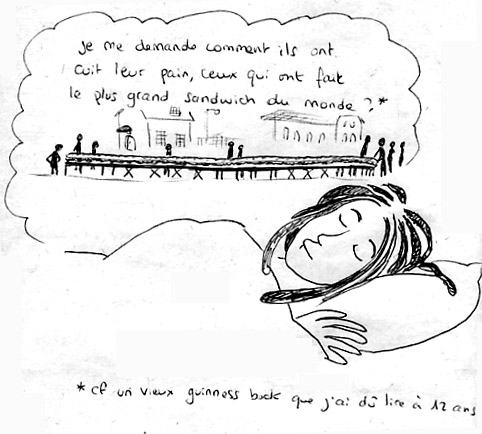 je me demande comment ils ont
cuit leur pain, ceux qui ont fait
le plus grand sandwich du monde ?*
* cf un vieux guinness book que j'ai dû lire à 12 ans